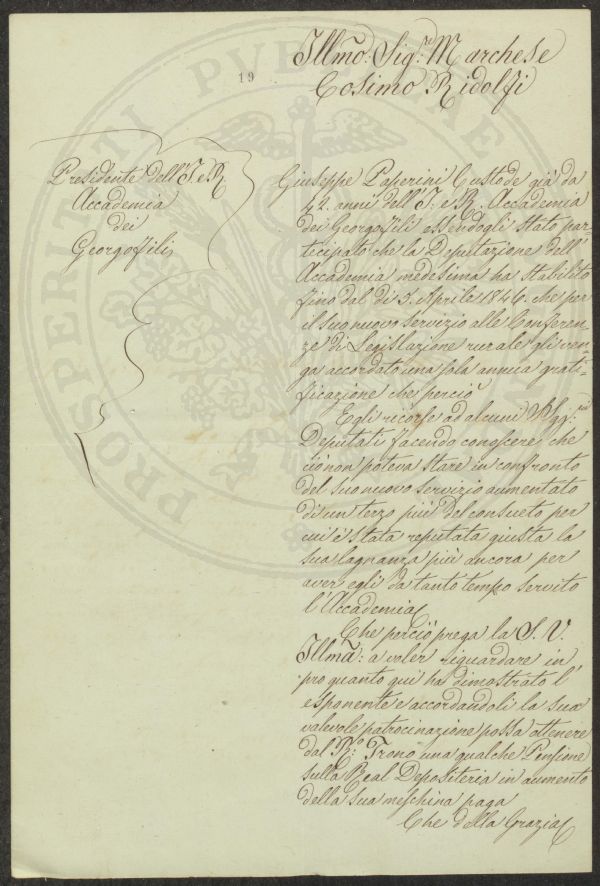 19
Illmo: Sigre Marchese
Cosimo Ridolfi
Presidente dell'I. e R.
Accademia
dei
Georgofili
Giuseppe Paperini Custode già da
42 anni dell'I. e R. Accademia
dei Georgofili essendogli stato par-
ticipato che la Deputazione dell'
Accademia medesima ha stabilito
fino dal dì 3. Aprile 1846. che per
il suo nuovo servizio alle Conferen-
ze di Legislazione rurale gli ven-
ga accordato una sola annua grati-
ficazione che perciò
Egli ricorse ad alcuni SSgg.ri
Deputati facendo conoscere che
ciò non poteva stare in confronto
del suo nuovo servizio aumentato
di un terzo più del consueto per
cui è stata reputata giusta la
sua lagnanza più ancora per
aver egli da tanto tempo servito
l'Accademia
Che perciò prega la S. V.
Illma: a voler riguardare in
pro quanto qui ha dimostrato l'
esponente e accordandoli la sua
valevole patrocinazione possa ottenere
dal R.o Trono una qualche Pensione
sulla Real Depositeria in aumento
della sua meschina paga
Che della Grazia
PROSPERITATI PUBLICAE